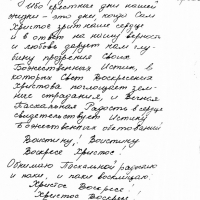 Ибо крестные дни нашей
жизни – это дни, когда Сам
Христос зрит наше сердце
и в ответ на нашу верность
и любовь дарует нам глу-
бину прозрения Своих
Божественных Истин, в
которых Свет Воскресения
Христова поглощает зем-
ные страдания, и Вечная
Пасхальная Радость в сердце
свидетельствует Истину
Божественных обетований
Воистину! Воистину
Воскресе Христос!
Обнимаю Пасхальной радостию
и паки, и паки восклицаю:
Христос Воскресе!
Христос Воскресе!